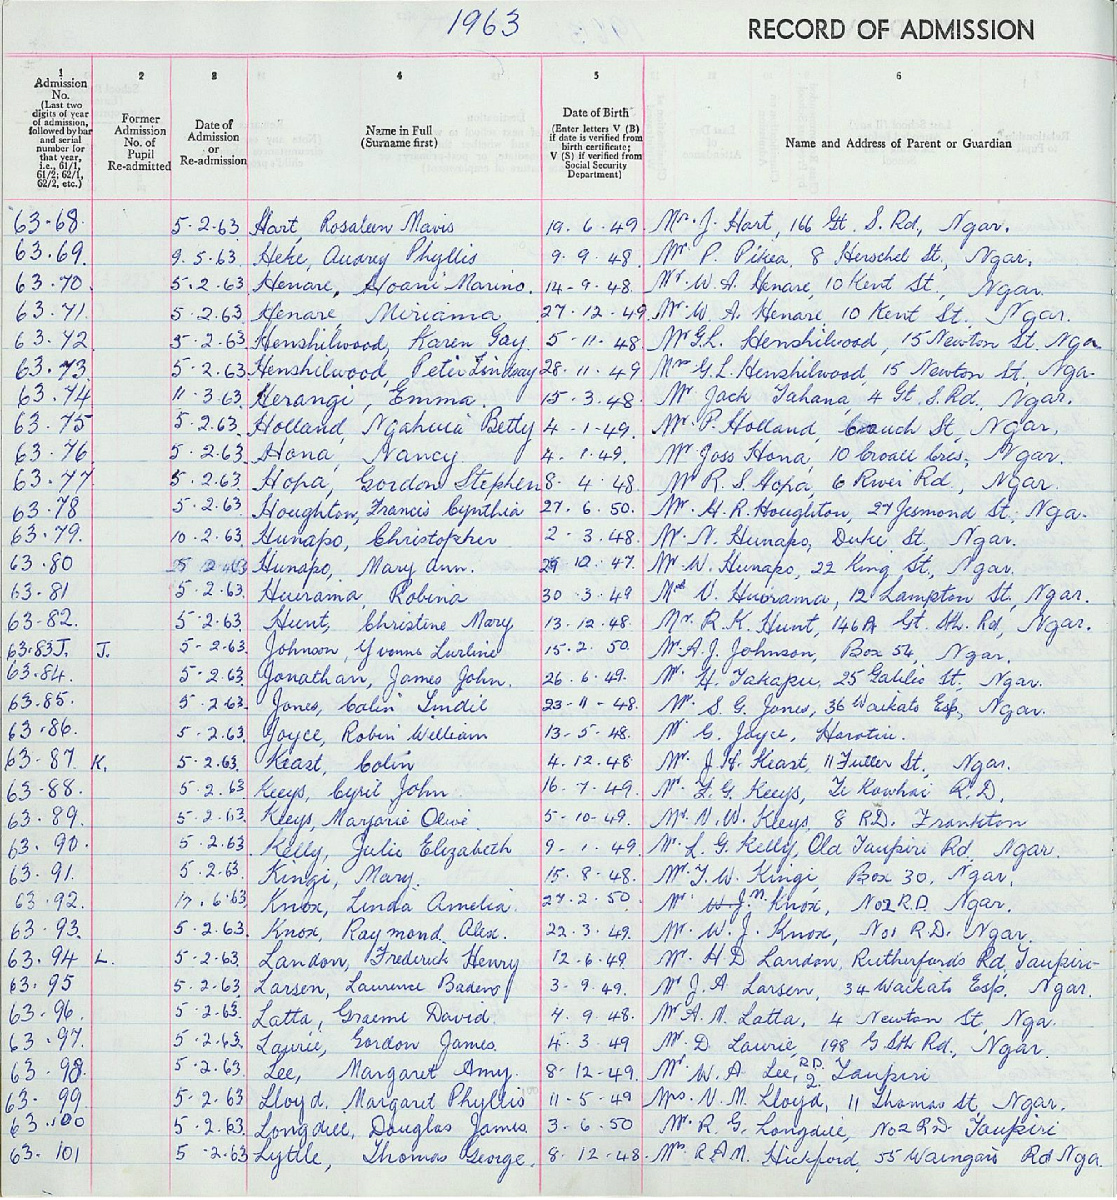 1963 RECORD OF ADMISSION
1 2 3 4 5 6
Admission No. (Last two digits of year of admission, followed by bar and serial number for that year, i.e., 61/1, 61/2; 62/1, 62/2, etc.)
Former Admission No. of Pupil Re-admitted
Date of Admission or Re-admission
Name in Full (Surname first)
Date of Birth (Enter letters V (B) if date is verified from birth certificate; V (S) if verified from Social Security Department)
Name and Address of Parent or Guardian
63-68. 5-2-63 Hart, Rosaleen Mavis 19.6.49. Mr. J. Hart, 166 Gt. S. Rd, Ngar.
63.69. 9.5.63. Heke, Audrey Phyllis 9.9.48. Mr P. Pikia, 8 Herschel St, Ngar.
63.70. 5.2.63 Henare, Hoani Marino. 14-9.48. Mr. W. A. Henare, 10 Kent St, Ngar.
63.71. 5.2.63 Henare Miriama 27.12.49 Mr W. A. Henare 10 Kent St. Ngar.
63.72. 5-2.63 Henshilwood, Karen Gay 5-11-48 Mr G.L. Henshilwood, 15 Newton St. Nga
63.73 5.2.63 Henshilwood, Peter Lindsay 28.11.49 Mr G.L. Henshilwood, 15 Newton St, Nga-
63.74 11.3.63 Herangi, Emma. 15.3.48. Mr Jack Tahana, 4 Gt. S. Rd, Ngar.
63.75 5.2.63. Holland, Ngahuia Betty 4-1-49. Mr P. Holland, Crouch St, Ngar.
63.76 5.2.63. Hona, Nancy. 4.1.49. Mr Joss Hona, 10 Croall Cres, Ngar.
63.77 5.2.63. Hopa, Gordon Stephen 8-4-48 Mr R. S. Hopa, 6 River Rd, Ngar.
63.78 5.2.63. Houghton, Francis Cynthia 27.6.50. Mr. H. R. Houghton, 27 Jesmond St, Nga.
63.79. 10.2.63. Hunapo, Christopher 2-3.48. Mr N. Hunapo, Duke St. Ngar.
63.80 5.2.63 Hunapo, Mary Ann. 29.12.47. Mr W. Hunapo, 22 King St, Ngar.
63.81 5.2.63. Huirama, Robina 30.3.49 V. Huirama, 12 Lampton St, Ngar.
63-82. 5-2.63 Hunt, Christine Mary 13.12.48. Mr. R. K. Hunt, 146A Gt. Sth. Rd, Ngar.
63.83J. J. 5-2.63. Johnson, Yvonne Lurline 15.2.50. Mr A.J. Johnson, Box 54, Ngar.
63.84. 5.2.63. Jonathan, James John. 26.6.49. Mr H. Takapu, 25 Galileo St, Ngar.
63.85. 5.2.63. Jones, Colin Lindil 23-11-48. Mr. S. G. Jones, 36 Waikato Esp, Ngar.
63.86. 5.2.63. Joyce, Robin William 13-5-48. Mr C. Joyce, Horotiu.
63-87 K. 5.2.63. Keast, Colin 4.12.48 Mr. J. H. Keast, 11 Fuller St, Ngar.
63-88. 5.2.63 Keeys, Cyril John 16-7.49. Mr. F. G. Keeys, Te Kowhai R.D.
63.89. 5.2.63. Keeys, Marjorie Olive 5-10-49. Mr. N. W. Keeys 8 R.D. Frankton
63.90. 5.2.63. Kelly, Julie Elizabeth 9-1-49. Mr L. G. Kelly, Old Taupiri Rd. Ngar.
63.91. 5.2.63. Kingi, Mary. 15.8.48. Mr T. W. Kingi, Box 30, Ngar.
63.92. 17.6.63. Knox, Linda Amelia. 27.2.50. Mr J.N. Knox, No2 R.D. Ngar.
63.93. 5.2.63. Knox, Raymond. Alex. 22.3.49. Mr. W. J. Knox, No1 R.D. Ngar.
63.94 L. 5.2.63. Landon, Frederick Henry 12.6.49. Mr. H D Landon, Rutherfords Rd, Taupiri-
63.95 5.2.63. Larsen, Laurence Badeno 3-9.49. Mr J. A. Larsen, 34 Waikato Esp. Ngar.
63.96. 5.2.63. Latta, Graeme David. 4.9.48. Mr A. N. Latta, 4 Newton St, Nga.
63.97. 5.2.63. Lawrie, Gordon James. 4.3.49 Mr. D Lawrie, 198 G Sth Rd, Ngar.
63.98. 5.2.63. Lee, Margaret Amy. 8-12-49. Mr. W. A Lee, RD. 2 Taupiri
63.99. 5-2.63 Lloyd, Margaret Phyllis 11-5-49 Mrs. V. M. Lloyd, 11 Thomas St, Ngar.
63.100 5.2.63. Longdill, Douglas James 3-6.50 Mr. R. G. Longdill, No2 R.D. Taupiri
63.101 5-2.63 Lyttle, Thomas George. 8.12-48. Hickford, 55 Waingaro Rd Nga.